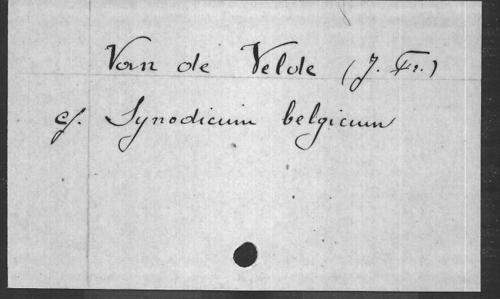 Van de Velde (J. Fr.)
cf. Synodicum belgicum